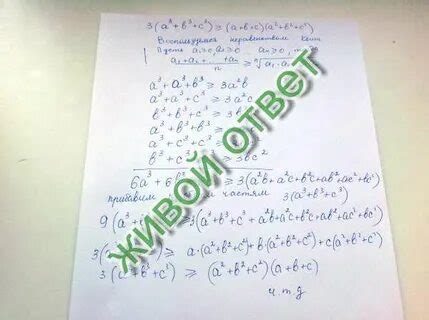 3(a³+b³+c³) ≥ (a+b+c)(a²+b²+c²)
Воспользуемся неравенством Коши
Пусть a₁≥0, a₂≥0 ... aₙ≥0,
a₁+a₂+...+aₙ / n ≥ ⁿ√a₁·a
a³+a³+b³ ≥ 3a²b
a³+a³+c³ ≥ 3a²c
b³+b³+c³ ≥ 3b
a³+b³+b³ ≥
a³+c³+c³ ≥
b³+c³+c³ ≥ 3bc²
6a³+6 ≥ 3(a²b+a²c+b²c+ab²+ac²+bc²)
прибавим частям 3(a³+b³+c³)
9(a³+ ≥ 3(a³+b³+c³+a²b+a²c+b²c+ab²+ac²+bc²)
3( ≥ a·(a²+b²+c²)+b(a²+b²+c²)+c(a²+b²+c²)
3( +b³+c³) ≥ (a²+b²+c²)(a+b+c)
ч.т.д
ЖИВОЙ ОТВЕТ